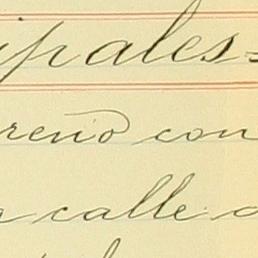 ipales=
reno con
a calle